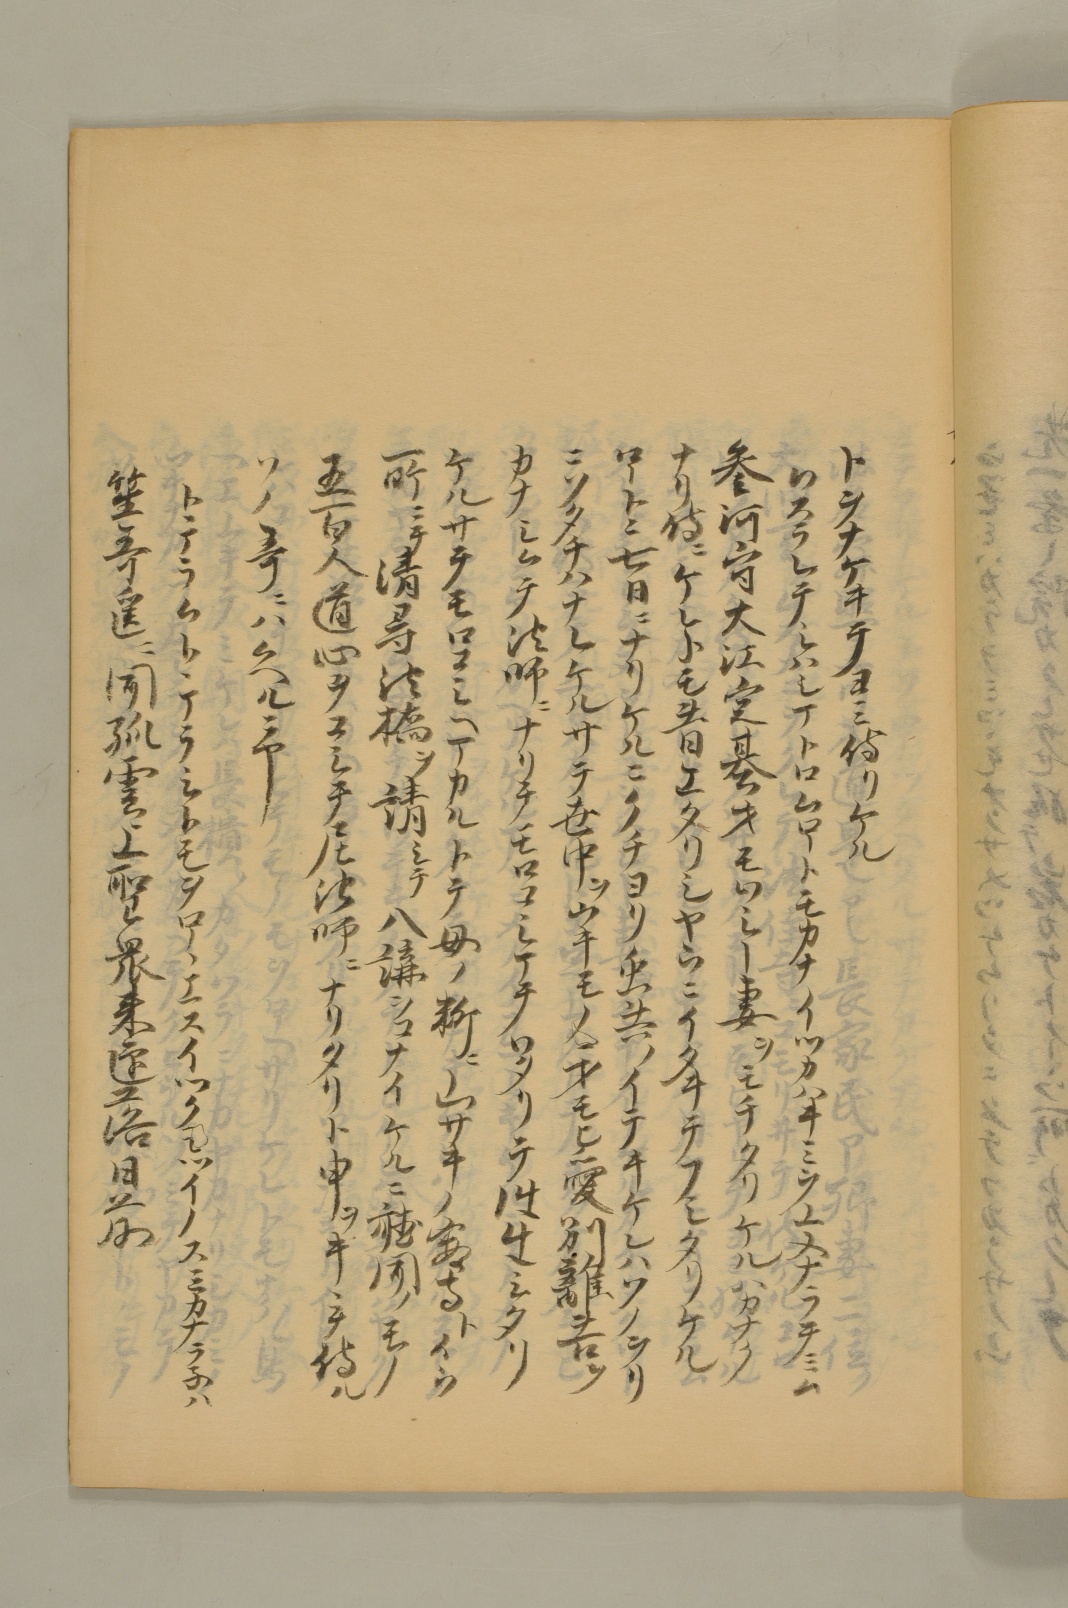 トヲナケキテヨミ侍リケル
ワスラレテシハシマトロムホトモカナイツカハキミヲユメナラテミム
参河守大江定基オモヒシ妻ヲモチタリケルハカナク
ナリ侍ニケレトモ其日エタリシヤウニイタキテフシタリケル
ホトニ七日ニナリケルニクチヨリ虫共ノイテキケレハソノヨリ
ニソタチハナレケルサテ世中ヲウキモノニオモヒ愛別離苦ヲ
カナシムテ法師ニナリテモロコシマテワタリテ往生シタリ
ケルサテモロコシヘマカルトテ母ノ料ニ山サキノ宝寺トイウ
所ニテ清尋法橋ヲ請シテ八講ヲコナイケルニ聴聞ノモノ
五百人道心ヲヲコシテ尼法師ニナリタリト申ツキテ侍ル
ソノ哥ニハクヘル
トテラムトテラシトモヲホエスイツクモツイノスミカナラネハ
笙哥遥ニ聞孤雲上聖衆来迎落日前